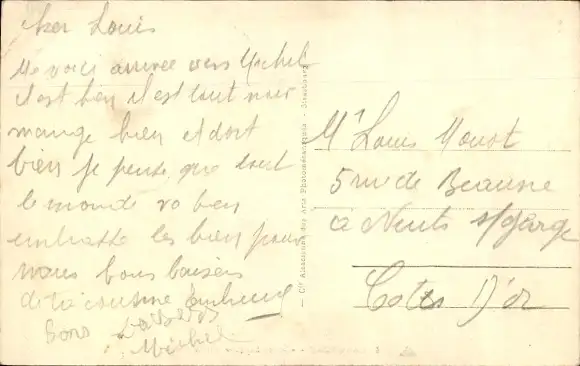 cher Louis
Me voici arrivée vers Michel
il est bien il est tout noir
mange bien et dort
bien je pense que tout
le monde va bien
embrasse les bien pour
nous bons baisers
de ta cousine
Bons baisers
Michel
Cie Alsacienne des Arts Photomécaniques - Strasbourg
Mr Louis Mouot
5 rue de Beaune
à Nuits s/
Cote D'or